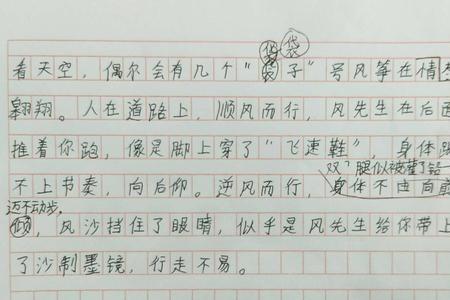 袋
看天空，偶尔会有几个"袋子"号风筝在情
翱翔。人在道路上，顺风而行，风先生在后面
推着你跑，像是脚上穿了"飞速鞋"，身体跟
双腿似被灌了铅
不上节奏，向后仰。逆风而行，身体不由向前
迈不动步，
倾，风沙挡住了眼睛，似乎是风先生给你带上
了沙制墨镜，行走不易。